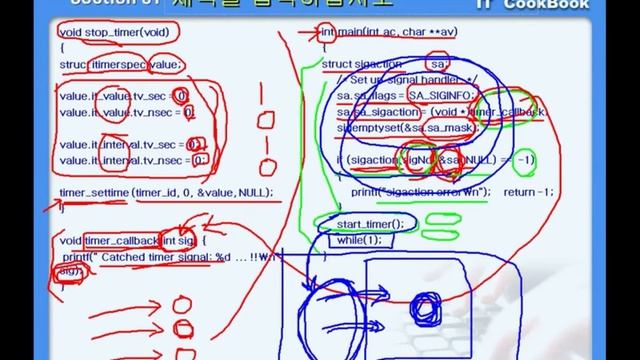 Section 01 제목을 입력하십시오
IT CookBook
void stop_timer(void)
{
struct itimerspec value;
value.it_value.tv_sec = 0;
value.it_value.tv_nsec = 0;
value.it_interval.tv_sec = 0;
value.it_interval.tv_nsec = 0;
timer_settime (timer_id, 0, &value, NULL);
}
void timer_callback(int sig) {
printf(" Catched timer signal: %d ... !!₩n",
sig);
}
int main(int ac, char **av)
{
struct sigaction sa;
/* Set up signal handler. */
sa.sa_flags = SA_SIGINFO;
sa.sa_sigaction = (void *)timer_callback;
sigemptyset(&sa.sa_mask);
if (sigaction(sigNo, &sa, NULL) == -1)
{
printf("sigaction error₩n"); return -1;
}
start_timer();
while(1);
}